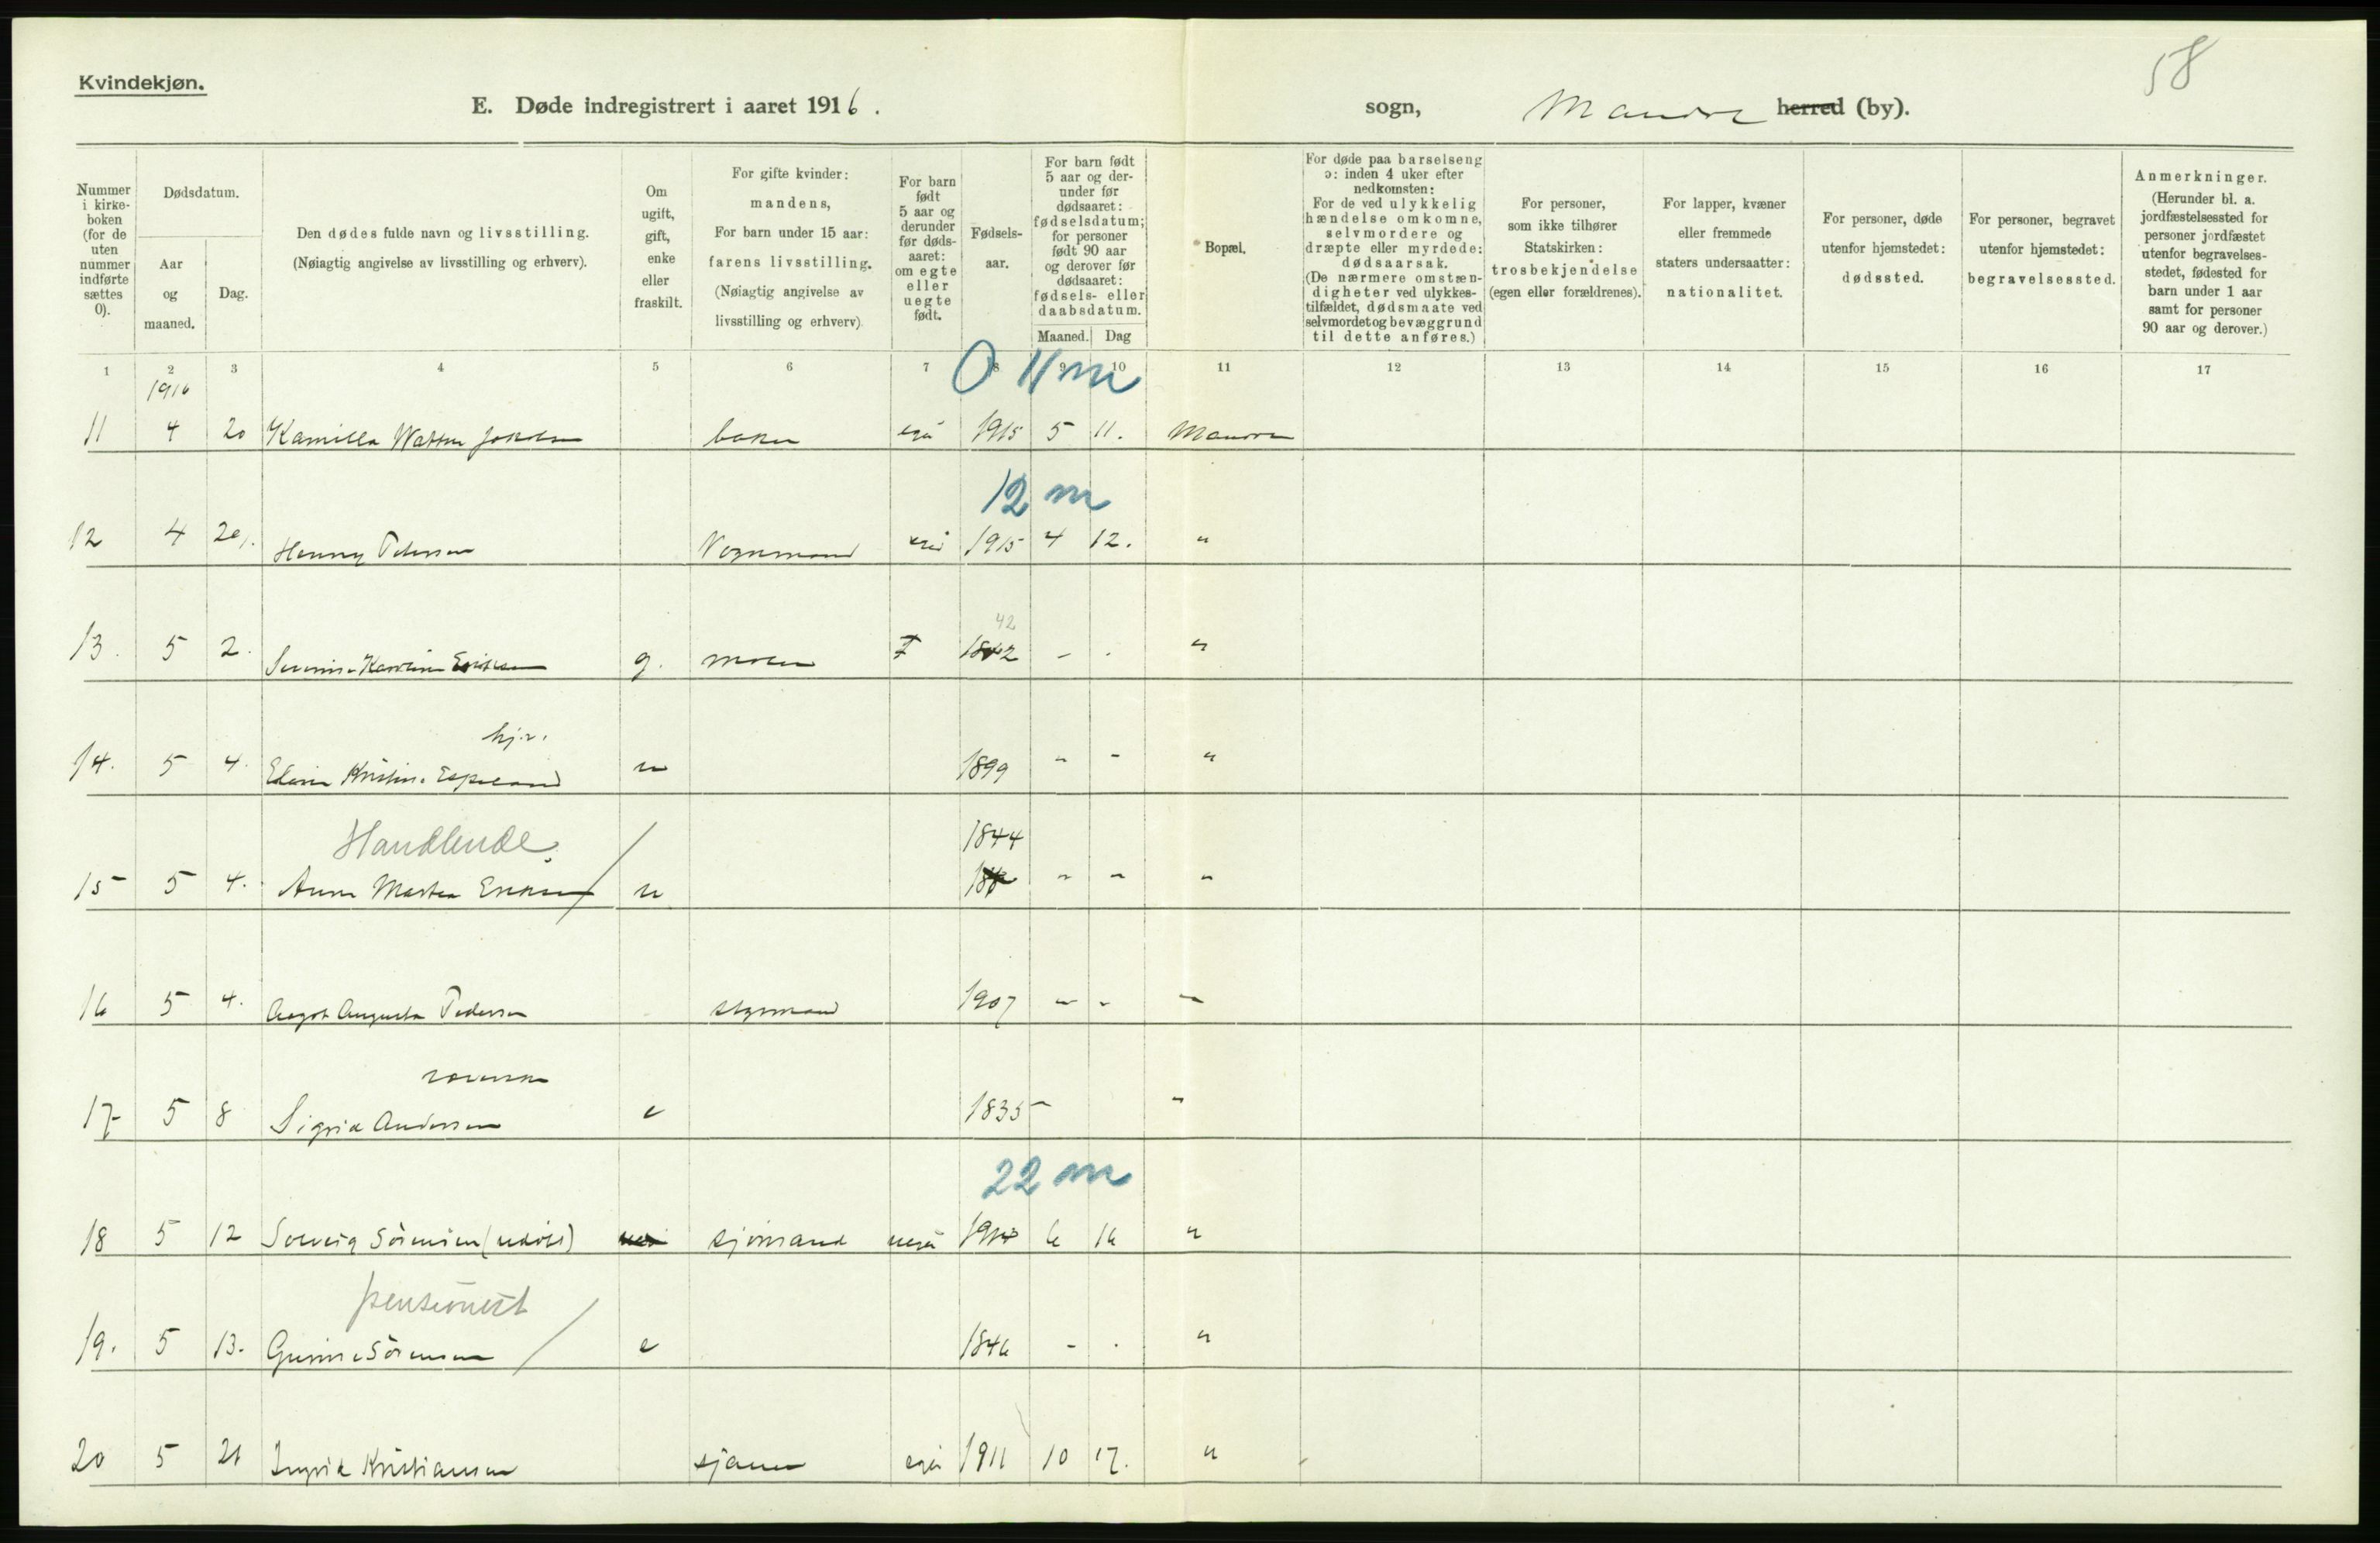 58
Kvindekjøn.
E. Døde indregistrert i aaret 1916. sogn, herred (by).
Nummer i kirke-boken (for de uten nummer indførte sættes 0).
Dødsdatum.
Aar og maaned.
Dag.
Den dødes fulde navn og livsstilling.
(Nøiagtig angivelse av livsstilling og erhverv).
Om ugift, gift, enke eller fraskilt.
For gifte kvinder: mandens,
For barn under 15 aar: farens livsstilling.
(Nøiagtig angivelse av livsstilling og erhverv).
For barn født 5 aar og derunder før døds-aaret: om egte eller uegte født.
Fødsels-aar.
For barn født 5 aar og der-under før dødsaaret: fødselsdatum; for personer født 90 aar og derover før dødsaaret: fødsels- eller daabsdatum.
Maaned. Dag
Bopæl.
For døde paa barselseng ɔ: inden 4 uker efter nedkomsten:
For de ved ulykkelig hændelse omkomne, selvmordere og dræpte eller myrdede: dødsaarsak.
(De nærmere omstæn-digheter ved ulykkes-tilfældet, dødsmaate ved selvmordet og bevæggrund til dette anføres.)
For personer, som ikke tilhører Statskirken: trosbekjendelse (egen eller forældrenes).
For lapper, kvæner eller fremmede staters undersaatter: nationalitet.
For personer, døde utenfor hjemstedet: dødssted.
For personer, begravet utenfor hjemstedet: begravelsessted.
Anmerkninger.
(Herunder bl. a. jordfæstelsessted for personer jordfæstet utenfor begravelses-stedet, fødested for barn under 1 aar samt for personer 90 aar og derover.)
1 2 3 4 5 6 7 8 9 10 11 12 13 14 15 16 17
1916
0 11 m
11 4 20 Kamilla baker 1915 5 11.
12 m
12 4 Henny Vognmand 1915 4 12. "
42
13. 5 2. g. 1842 - - "
14. 5 4. Kristine Espeland u 1899 " - "
Handlende 1844
15 5 4. Anne Eriksen u - - "
16 5 4. Aagot Augusta Pedersen styrmand 1907 - - "
17 5 8 Sigrid Andersen e 1835 "
22 m
18 5 12 Solveig Sörensen sjömand 6 16 "
pensionist
19. 5 13. Sörensen e 1846 - - "
20 5 21 Ingrid Kristiansen 1911 10 17. "